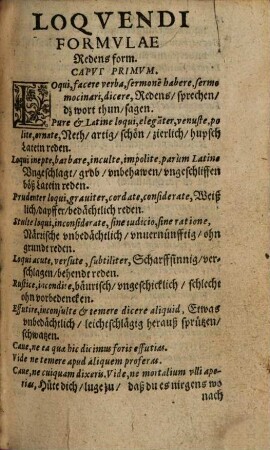 LOQVENDI
FORMVLAE
Redens form.
CAPVT PRIMVM.
LOqui, facere verba, sermonē habere, sermo
mocinari, dicere, Redens/ sprechen/
dz wort thun/ sagen.
Pure & Latine loqui, elegāter, venuste, po
lite, ornate, Neth/ artig/ schön/ zierlich/ hupsch
Latein reden.
Loqui inepte, barbare, inculte, impolite, parùm Latine
Vngeschlagt/ grob/ vnbehawen/ vngeschliffen
bößLatein reden.
Prudenter loqui, grauiter, cordate, considerate, Weiß
lich/dapffer/bedächtlich reden.
Stulte loqui, inconsiderate, sine iudicio, sine ratione,
Närrische vnbedächtlich/ vnuernünfftig/ ohn
grundreden.
Loqui acute, versute, subtiliter, Scharffsinnig/ver-
schlagen/behendt reden.
Rustice, incondite, bäurisch/ vngeschicklich/ schlecht
ohn vorbedencken.
Effutire, inconsulte & temere dicere aliquid, Etwas
vnbedächtlich/ leichtschlägig herauß sprützen/
schwatzen.
Caue, ne ea quæ hic dicimus foris effutias.
Vide ne temere apud aliquem proferas.
Caue, ne cuiquam dixeris. Vide, ne mortalium vlli ape-
rias, Hüte dich/ luge zu/ daß du es niergens wo
nach